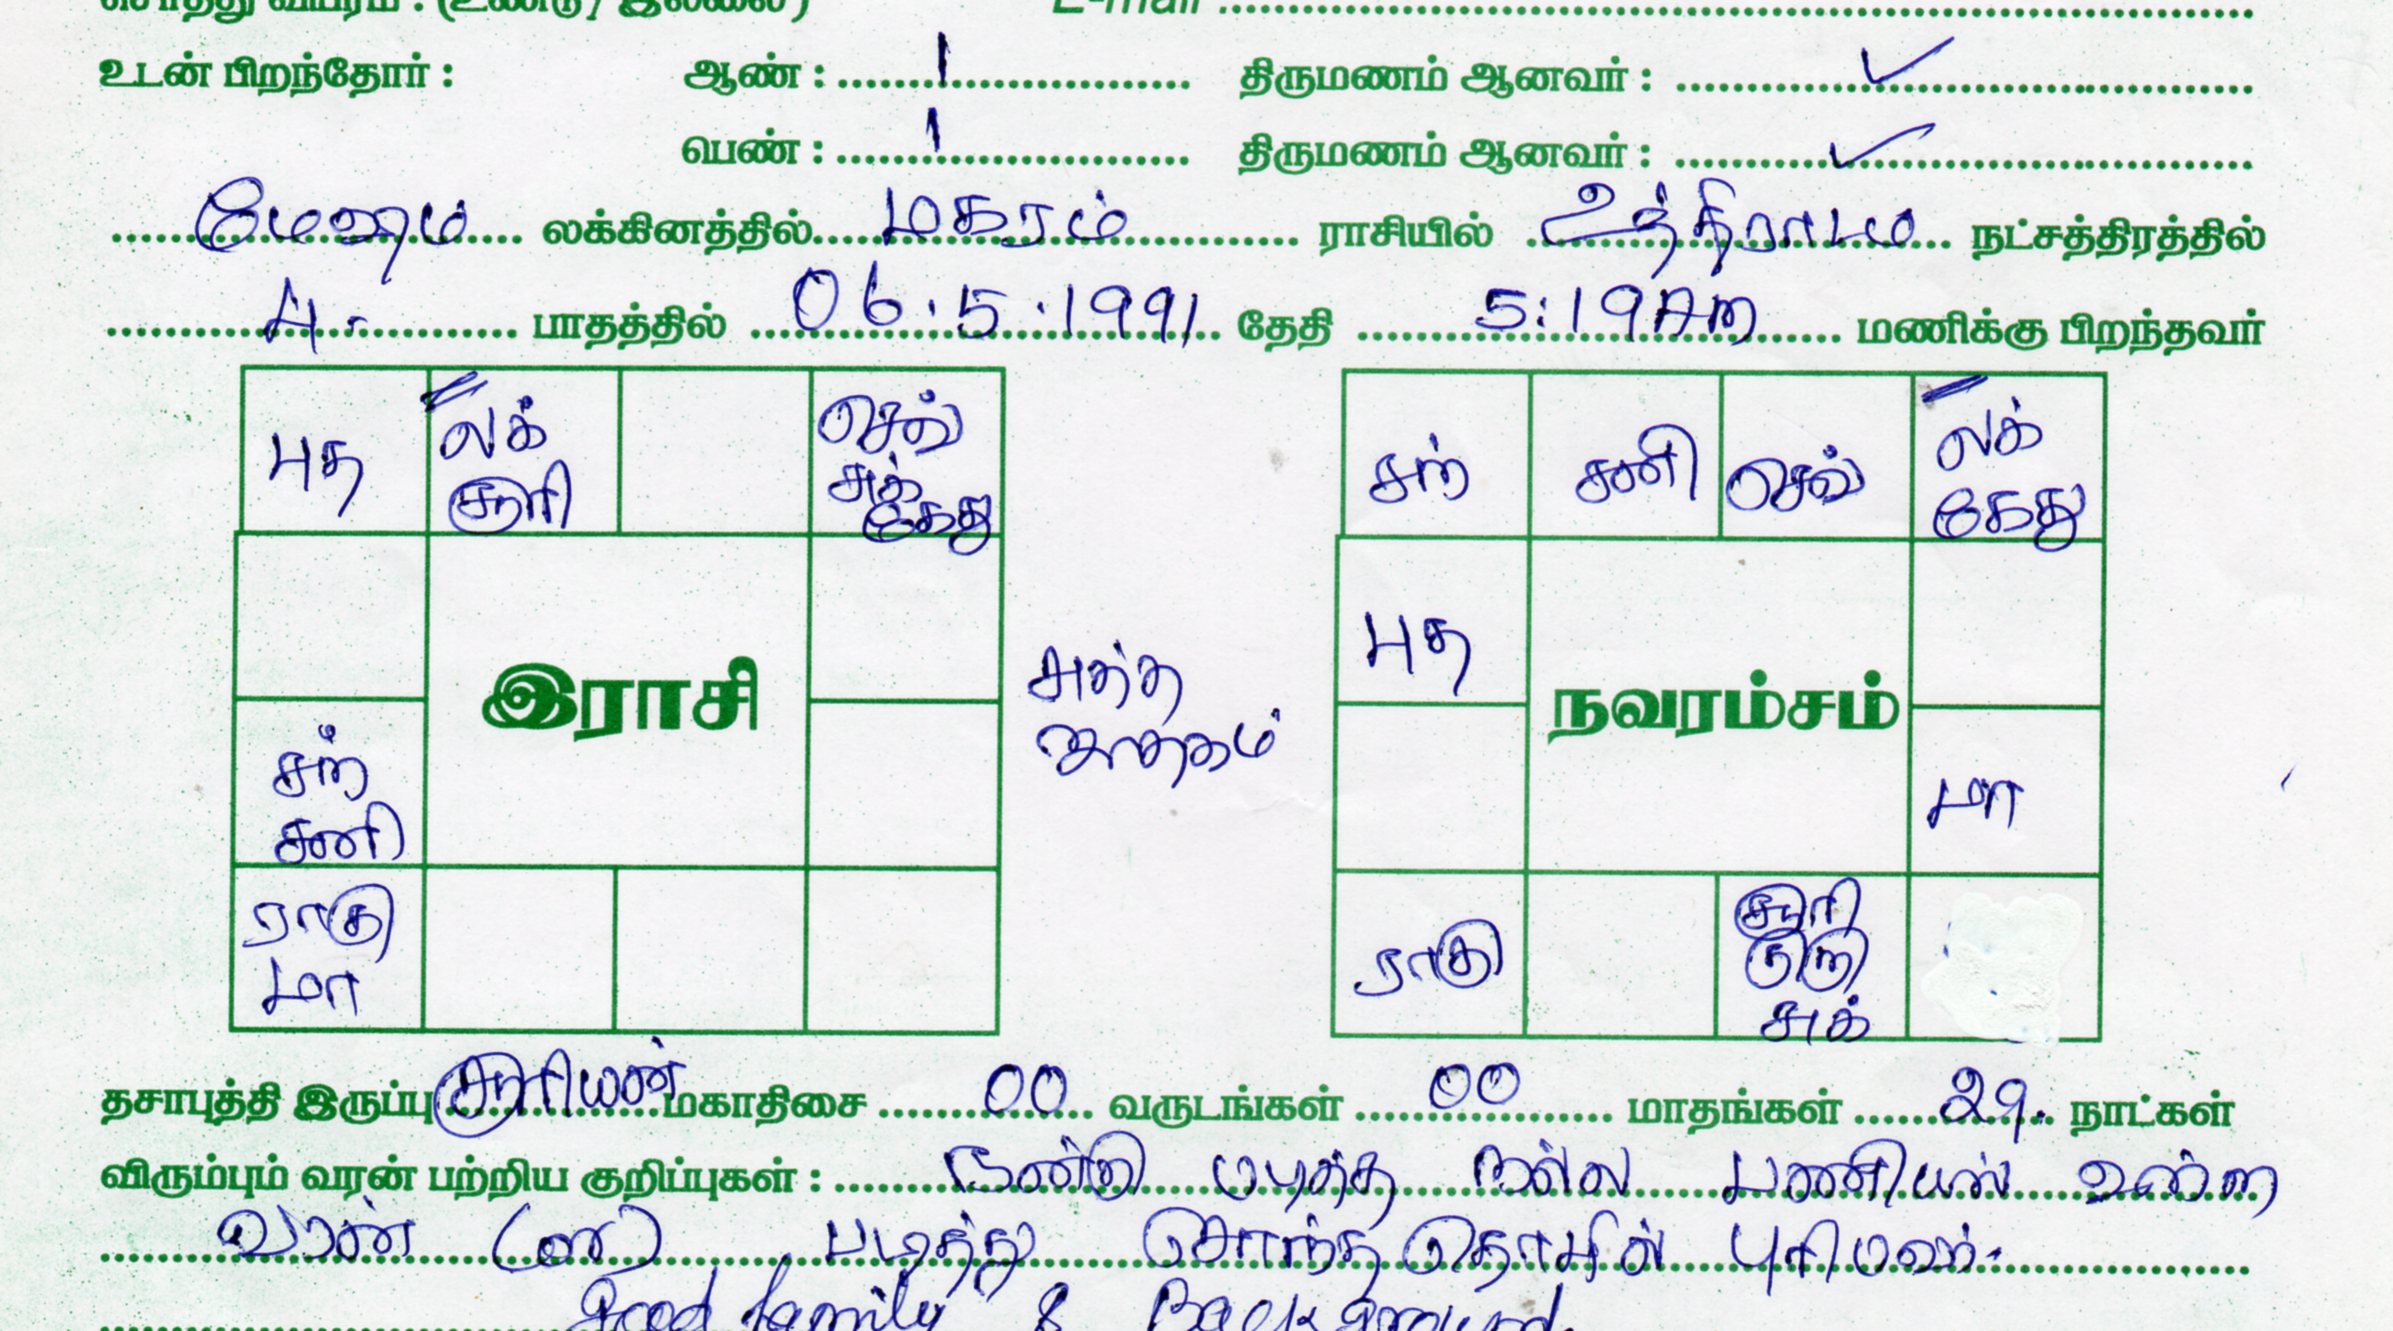 சொத்து விபரம் : (உண்டு / இல்லை) E-mail :
உடன் பிறந்தோர் : ஆண் : 1 திருமணம் ஆனவர் : ✓
பெண் : 1 திருமணம் ஆனவர் : ✓
மேஷம் லக்கினத்தில் மகரம் ராசியில் உத்திராடம் நட்சத்திரத்தில்
4. பாதத்தில் 06.5.1991 தேதி 5:19AM மணிக்கு பிறந்தவர்
புத லக் செவ் சந் சனி செவ் லக்
சூரி சுக் கேது கேது
புத
இராசி நவரம்சம்
சுத்த ஜாதகம்
சந் சனி மா
ராகு மா ராகு சூரி குரு சுக்
தசாபுத்தி இருப்பு சூரியன் மகாதிசை 00 வருடங்கள் 00 மாதங்கள் 29. நாட்கள்
விரும்பும் வரன் பற்றிய குறிப்புகள் : நன்கு படித்த நல்ல பணியில் உள்ள
வரன் (or) படித்து சொந்த தொழில் புரிபவர்.
Good family & Background.